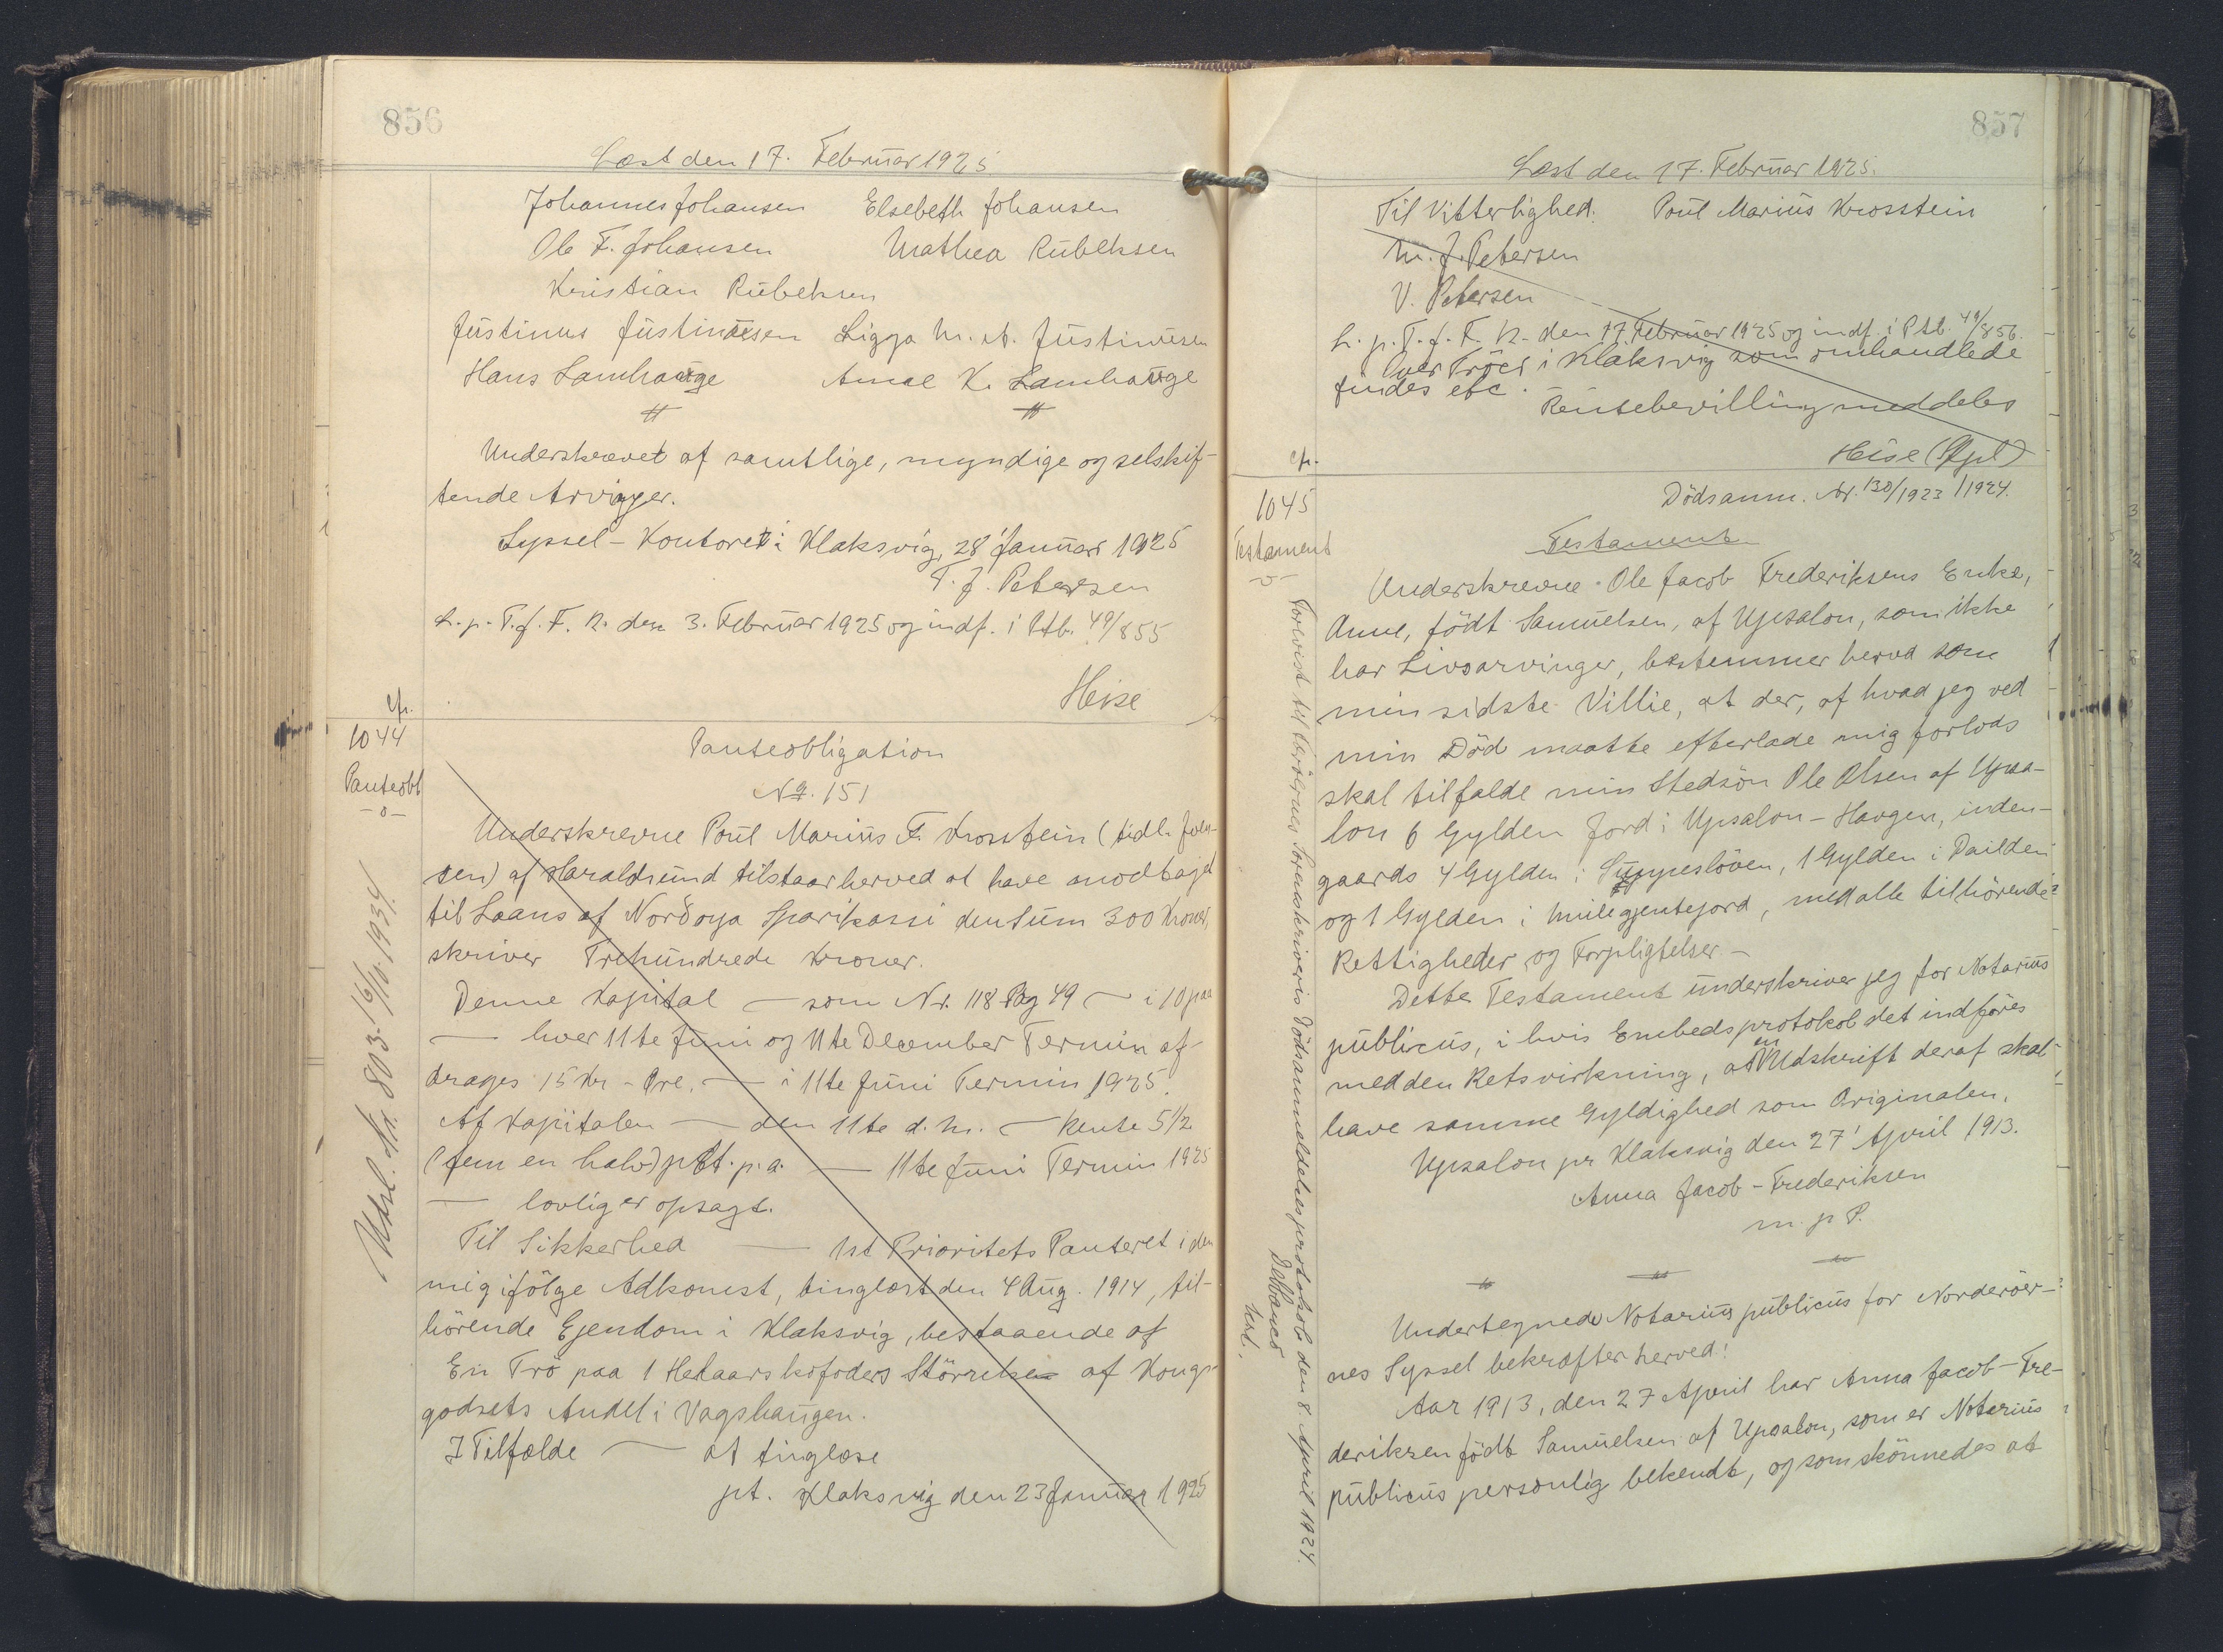 856
Læst den 17. Februar 1925
Johannes Johansen Elsebeth Johansen
Ole F. Johansen Mathea Rubeksen
Kristian Rubeksen
Justinus Justinusen Ligga M. A. Justinusen
Hans Lamhauge Amal K. Lamhauge
Underskrevet af samtlige, myndige og selskif-
tende Arvinger.
Syssel-Kontoret i Klaksvig, 28' Januar 1925
T. J. Petersen
L. p. T. f. F. R. den 3. Februar 1925 og indf. i Ptb. 49/855
Heise
cfr.
1044
Panteobl
-o-
Udsl. No. 803. 16/10. 1934.
Panteobligation
No. 151
Underskrevne Poul Marius F. Krosstein (tidl. Joen-
sen) af Haraldsund tilstaar herved at have modtaget
til Laans af Nordoya Sparikassi den Sum 300 Kroner,
skriver Trehundrede Kroner.
Denne Kapital — som Nr. 118 Pag 49 — i 10 paa
— hver 11te Juni og 11te December Termin af-
drages 15 Kr - Øre. — i 11te Juni Termin 1925.
Af Kapitalen — den 11te d. M. — Rente 5 1/2
(fem en halv) pCt. p. a. — 11te Juni Termin 1925
— lovlig er opsagt.
Til Sikkerhed — 1st Prioritets Panteret i den
mig ifölge Adkomst, tinglæst den 4 Aug. 1914, til-
hörende Ejendom i Klaksvig, bestaaende af
En Trö paa 1 Helaarskofoders Störrelse af Kongs-
godsets Andel i Vagshaugen.
I Tilfælde — at tinglæse
pt. Klaksvig den 23 Januar 1925
857
Læst den 17. Februar 1925.
Til Vitterlighed: Poul Marius Krosstein
M. J. Petersen
V. Petersen
L. p. T. f. F. R. den 17. Februar 1925 og indf. i Ptb. 49/856.
Over Tröer i Klaksvig som omhandlede
findes etc.
Rentebevilling meddeles
Heise (Gpl)
cfr.
1045
Testament
-o-
Forevist til Skifteretten
Dödsanm. Nr. 130/1923/1924.
Testament
Underskrevne Ole Jacob Frederiksens Enke,
Anne, födt Samuelsen, af Upsalon, som ikke
har Livsarvinger, bestemmer herved som
min sidste Villie, at der, af hvad jeg ved
min Död maatte efterlade mig forlods
skal tilfalde min Stedsön Ole Olsen af Upsa-
lon 6 Gylden Jord i Upsalon-Haugen, inden-
gaards 4 Gylden i 1 Gylden i Dailden
og 1 Gylden i med alle tilhörende
Rettigheder og Forpligtelser. —
Dette Testament underskriver jeg for Notarius
publicus, i hvis Embedsprotokol det indföres
med den Retsvirkning, at en Udskrift deraf skal
have samme Gyldighed som Originalen.
Upsalon pr Klaksvig den 27' April 1913.
Anna Jacob-Frederiksen
m. p. P.
Undertegnede Notarius publicus for Norderöer-
nes Syssel bekræfter herved:
Aar 1913, den 27 April har Anna Jacob-Fre-
deriksen födt Samuelsen af Upsalon, som er Notarius
publicus personlig bekendt, og som skönnedes at
Dödsanmeldelsesprotokol den 8 April 1924.